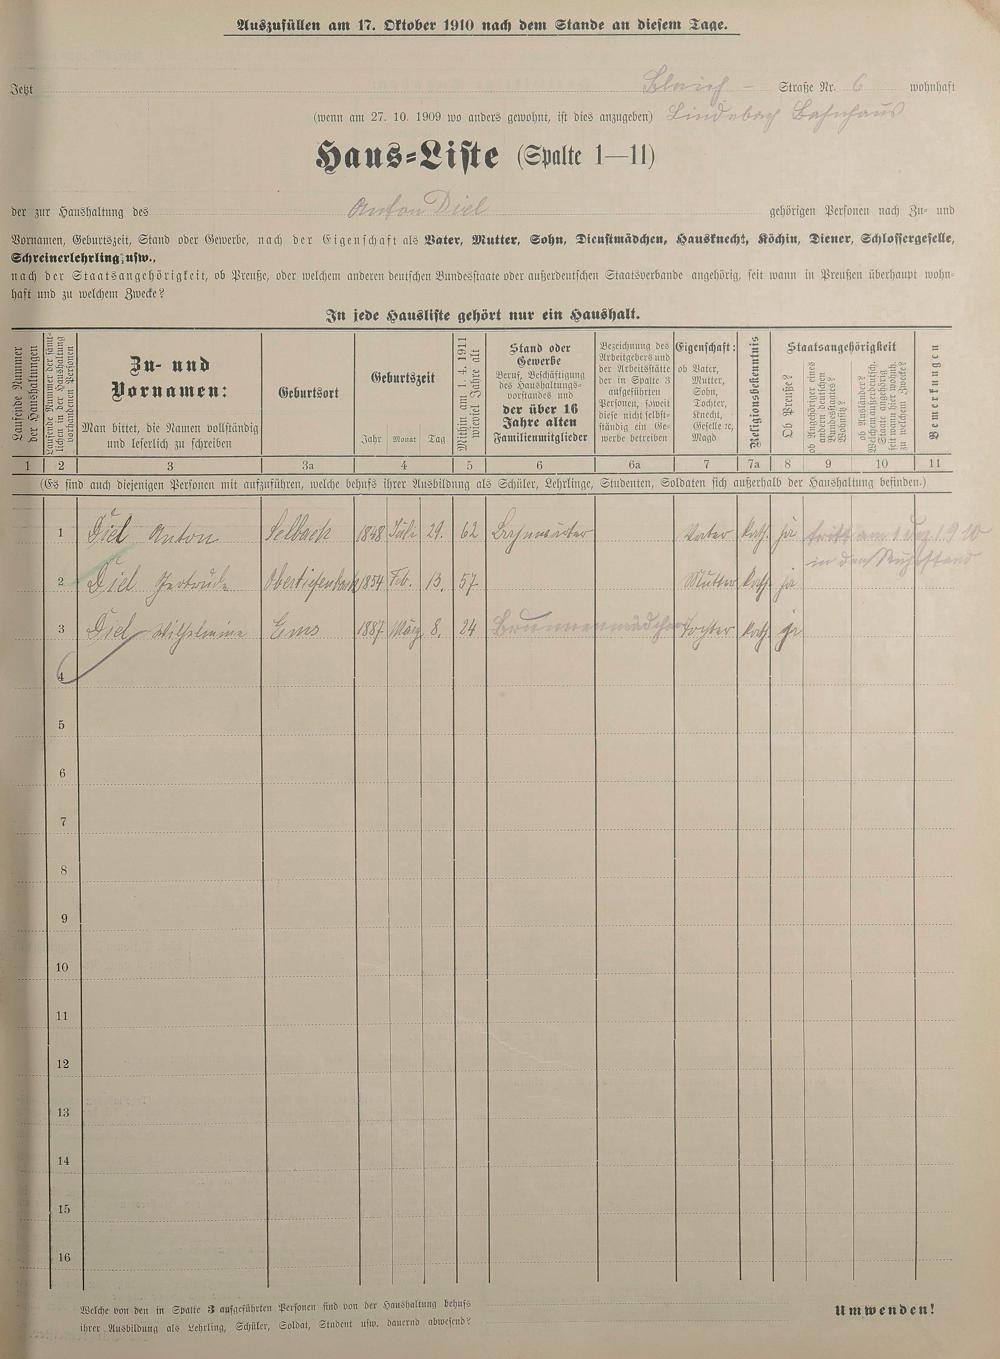 Auszufüllen am 17. Oktober 1910 nach dem Stande an diesem Tage.
Jetzt Straße Nr. 6 wohnhaft
(wenn am 27. 10. 1909 wo anders gewohnt, ist dies anzugeben) Lindenbach Bahnhaus
Haus-Liste (Spalte 1—11)
der zur Haushaltung des Anton Diel gehörigen Personen nach Zu- und
Vornamen, Geburtszeit, Stand oder Gewerbe, nach der Eigenschaft als Vater, Mutter, Sohn, Dienstmädchen, Hausknecht, Köchin, Diener, Schlossergeselle,
Schreinerlehrling usw.,
nach der Staatsangehörigkeit, ob Preuße, oder welchem anderen deutschen Bundesstaate oder außerdeutschen Staatsverbande angehörig, seit wann in Preußen überhaupt wohn-
haft und zu welchem Zwecke?
In jede Hausliste gehört nur ein Haushalt.
Laufende Nummer
der Haushaltungen
Laufende Nummer der sämt-
lichen in der Haushaltung
vorhandenen Personen
Zu- und
Vornamen:
Man bittet, die Namen vollständig
und leserlich zu schreiben
Geburtsort
Geburtszeit
Jahr Monat Tag
Mithin am 1. 4. 1911
wieviel Jahre alt
Stand oder
Gewerbe
Beruf, Beschäftigung
des Haushaltungs-
vorstandes und
der über 16
Jahre alten
Familienmitglieder
Bezeichnung des
Arbeitgebers und
der Arbeitsstätte
der in Spalte 3
aufgeführten
Personen, soweit
diese nicht selbst-
ständig ein Ge-
werbe betreiben
Eigenschaft:
ob Vater,
Mutter,
Sohn,
Tochter,
Knecht,
Geselle rc,
Magd
Religionsbekenntnis
Staatsangehörigkeit
Ob Preuße?
ob Angehöriger eines
andern deutschen
Bundesstaates?
Wohnsitz?
ob Ausländer?
Welchem außerdeutsch.
Staate angehörig
seit wann hier wohnh.
zu welchem Zwecke?
Bemerkungen
1 2 3 3a 4 5 6 6a 7 7a 8 9 10 11
(Es sind auch diejenigen Personen mit aufzuführen, welche behufs ihrer Ausbildung als Schüler, Lehrlinge, Studenten, Soldaten sich außerhalb der Haushaltung befinden.)
1 Diel Anton Selbach 1848 Juli 29. 62 Bahnwärter Vater kath. ja tritt am 1 Dez 1910
in den Ruhestand
2 Diel Gertrude Obertiefenbach 1854 Feb. 13. 57 Mutter kath. ja
3 Diel Wilhelmine Ems 1887 März 8. 24 Brunnenmädchen Tochter kath. ja
4
5
6
7
8
9
10
11
12
13
14
15
16
Welche von den in Spalte 3 aufgeführten Personen sind von der Haushaltung behufs
ihrer Ausbildung als Lehrling, Schüler, Soldat, Student usw. dauernd abwesend?
Umwenden!